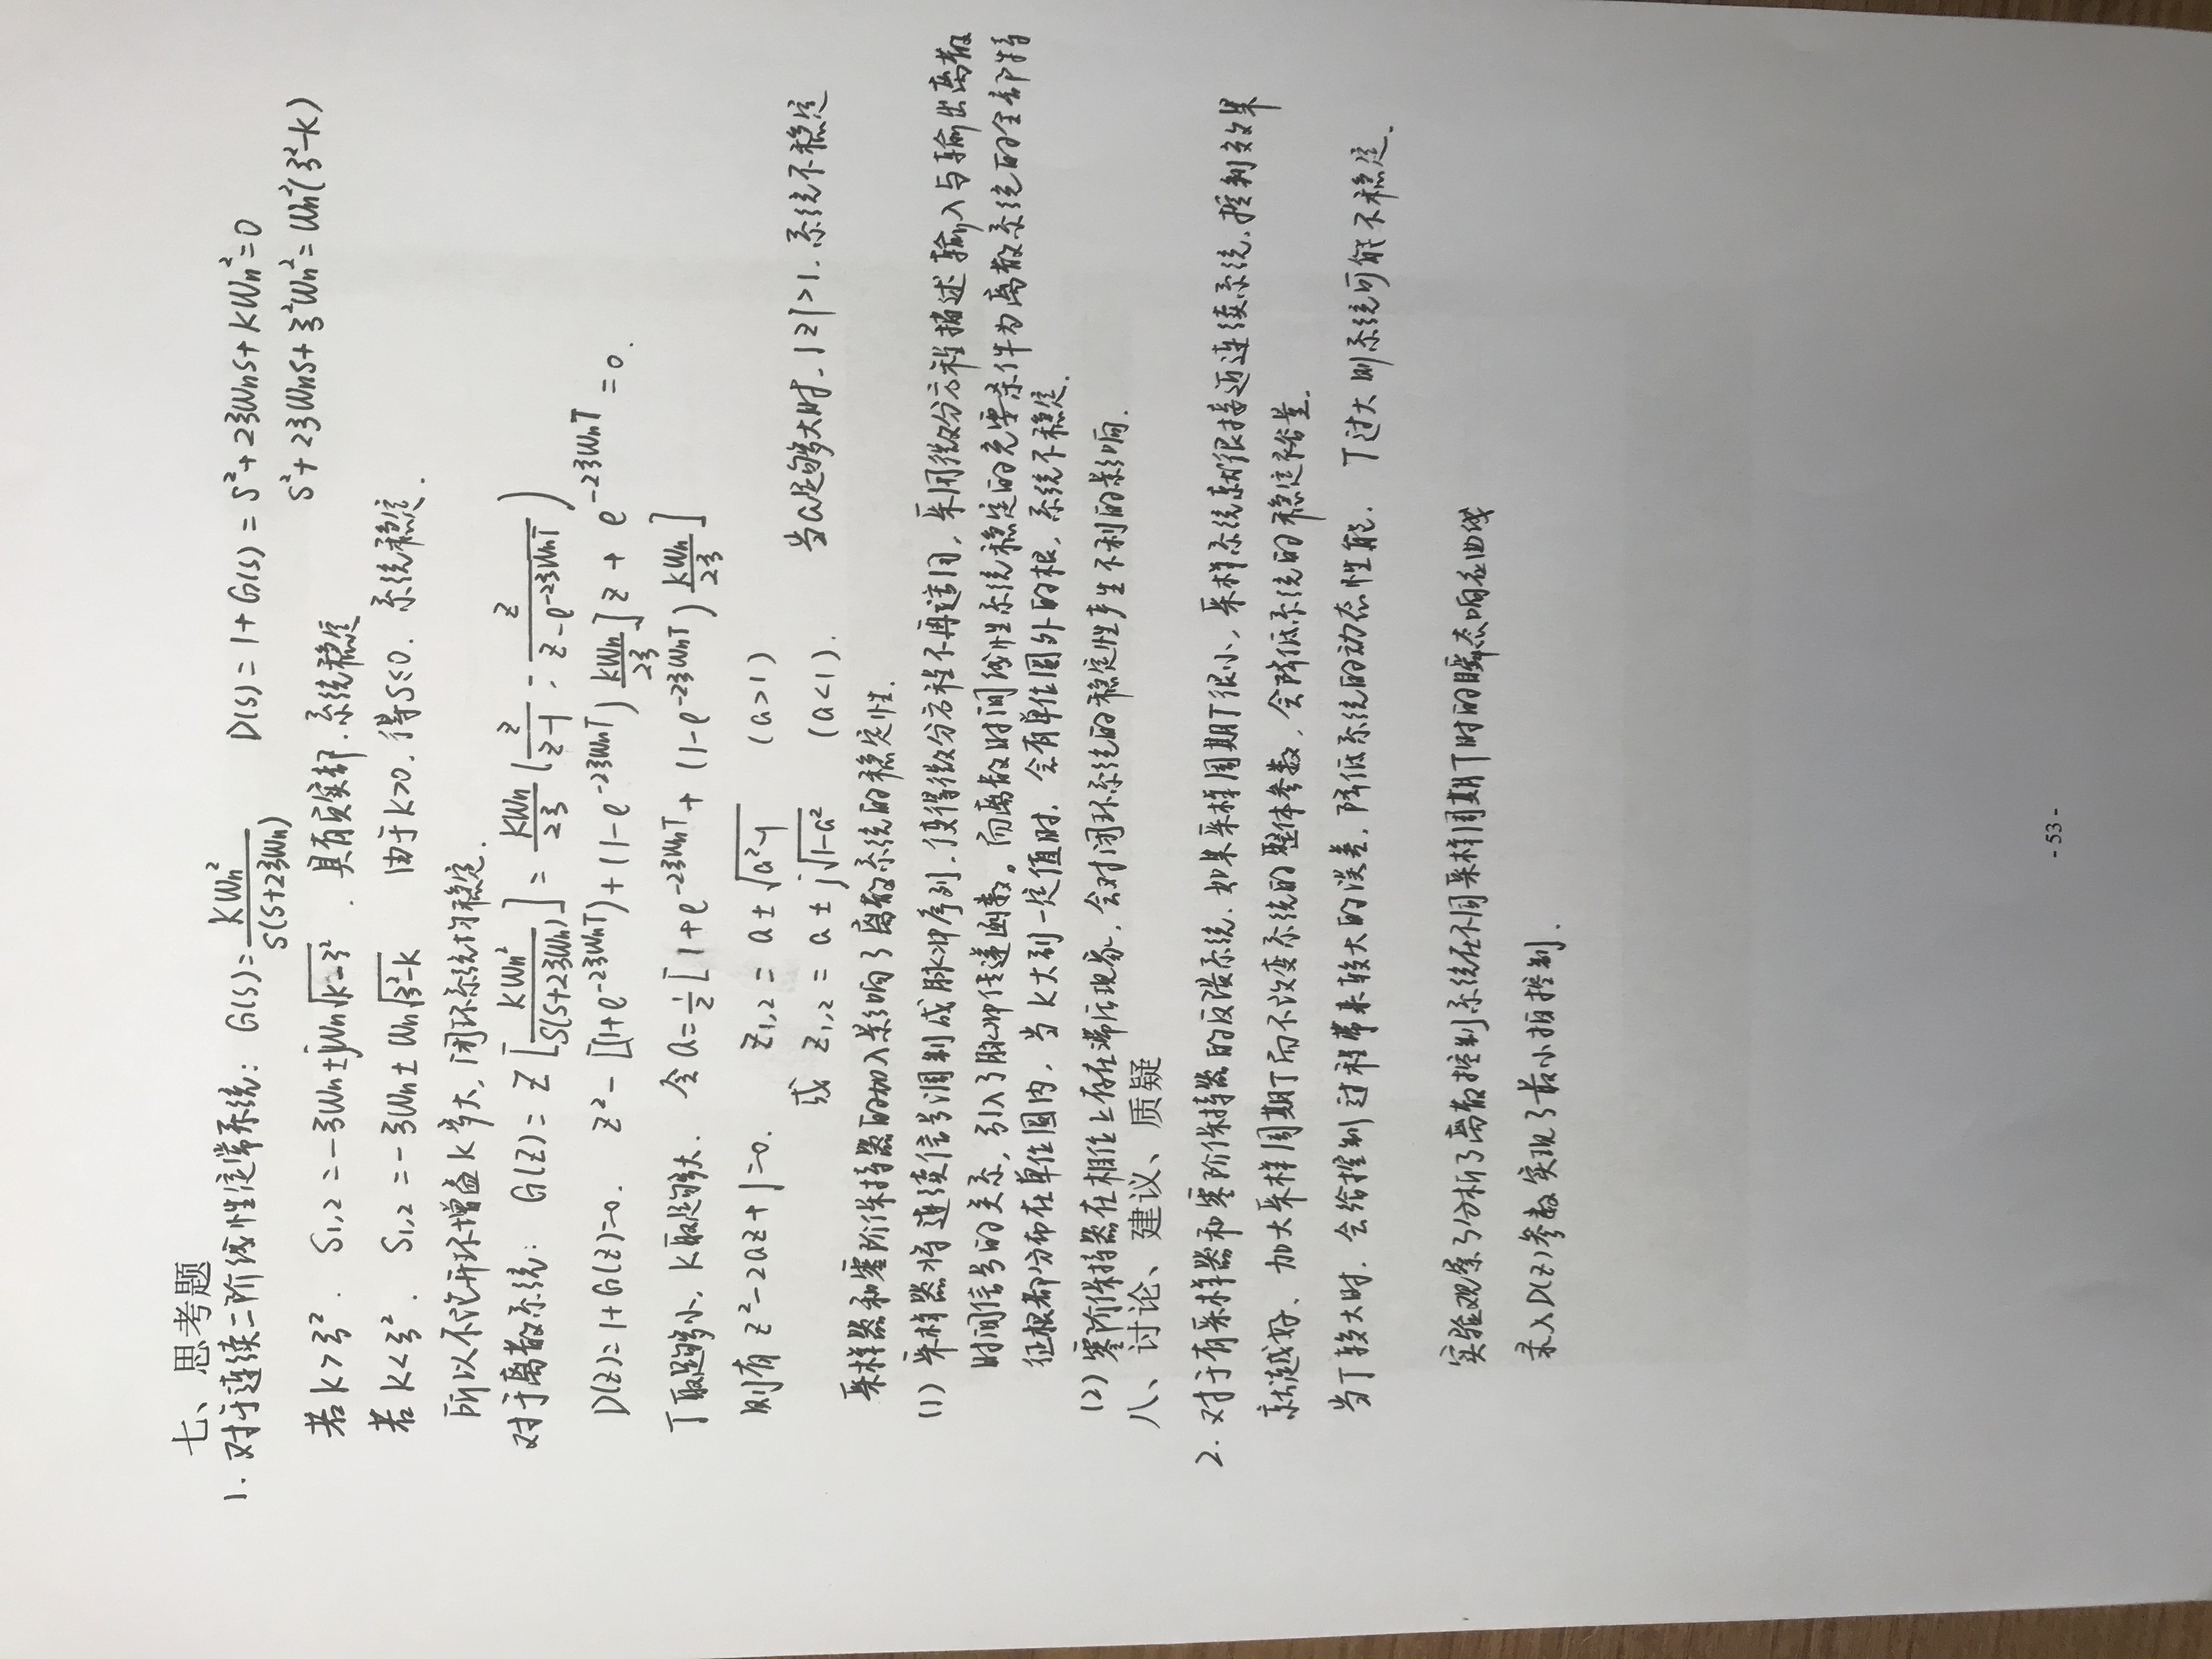 七、思考题
1. 对于连续二阶线性定常系统: G(s)=KWn²/S(S+2ξWn) D(s)=1+G(s)=S²+2ξWnS+KWn²=0
S²+2ξWnS+ξ²Wn²=Wn²(ξ²-K)
若K>ξ². S1,2=-ξWn±jWn√(K-ξ²). 具有负实部.系统稳定
若K<ξ². S1,2=-ξWn±Wn√(ξ²-K) 由于K>0.得S≤0. 系统稳定.
所以不论开环增益K多大,闭环系统均稳定.
对于离散系统: G(Z)=Z[KWn²/S(S+2ξWn)]=KWn/2ξ(z/(z-1)-z/(z-e^(-2ξWnT)))
D(Z)=1+G(Z)=0. z²-[(1+e^(-2ξWnT))+(1-e^(-2ξWnT))KWn/2ξ]z+e^(-2ξWnT)=0.
T取足够小, K取足够大. 令a=1/2[1+e^(-2ξWnT)+(1-e^(-2ξWnT))KWn/2ξ]
则有z²-2az+1=0. Z1,2=a±√(a²-1) (a>1)
或 Z1,2=a±j√(1-a²) (a<1). 当a足够大时,|z|>1.系统不稳定
采样器和零阶保持器的加入影响了离散系统的稳定性.
(1) 采样器将连续信号调制成脉冲序列,使得微分方程不再适用,采用微分方程描述输入与输出离散
时间信号的关系,引入了脉冲传递函数。而离散时间线性系统稳定的充要条件为离散系统的全部特
征根都分布在单位圆内,当K大到一定值时,会有单位圆外的根,系统不稳定.
(2) 零阶保持器在相位上存在滞后现象,会对闭环系统的稳定性产生不利的影响.
八、讨论、建议、质疑
2. 对于有采样器和零阶保持器的反馈系统.如果采样周期T很小,采样系统就很接近连续系统,控制效果
就越好. 加大采样周期T而不改变系统的整体参数,会降低系统的稳定裕量.
当T较大时.会给控制过程带来较大的误差,降低系统的动态性能. T过大则系统可能不稳定.
实验观察了分析了离散控制系统在不同采样周期T时的瞬态响应曲线
录入D(z)参数实现了最小拍控制.
- 53 -